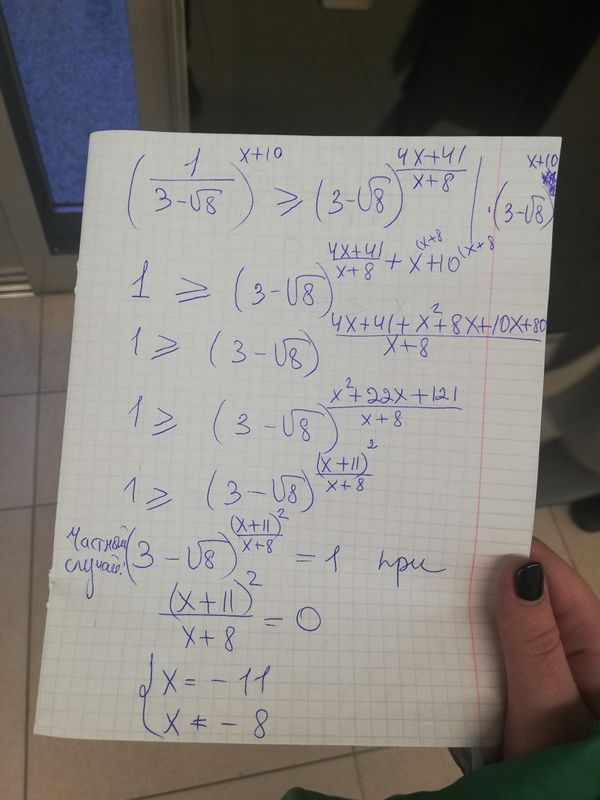 (1/(3-√8))^(x+10) ≥ (3-√8)^((4x+41)/(x+8)) | ·(3-√8)^(x+10)
1 ≥ (3-√8)^((4x+41)/(x+8) + x^(x+8 + 10^(x+8)
1 ≥ (3-√8)^((4x+41+x²+8x+10x+80)/(x+8))
1 ≥ (3-√8)^((x²+22x+121)/(x+8))
1 ≥ (3-√8)^((x+11)²/(x+8))
Частный случай: (3-√8)^((x+11)²/(x+8)) = 1 при
(x+11)²/(x+8) = 0
{ x = -11
x ≠ -8